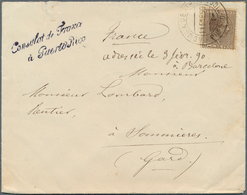 Consulat de France
à Puerto Rico
France
adressée le 3 févr. 90
à Barcelone
Monsieur
Monsieur Lombard,
Rentier,
à Sommières
(Gard)